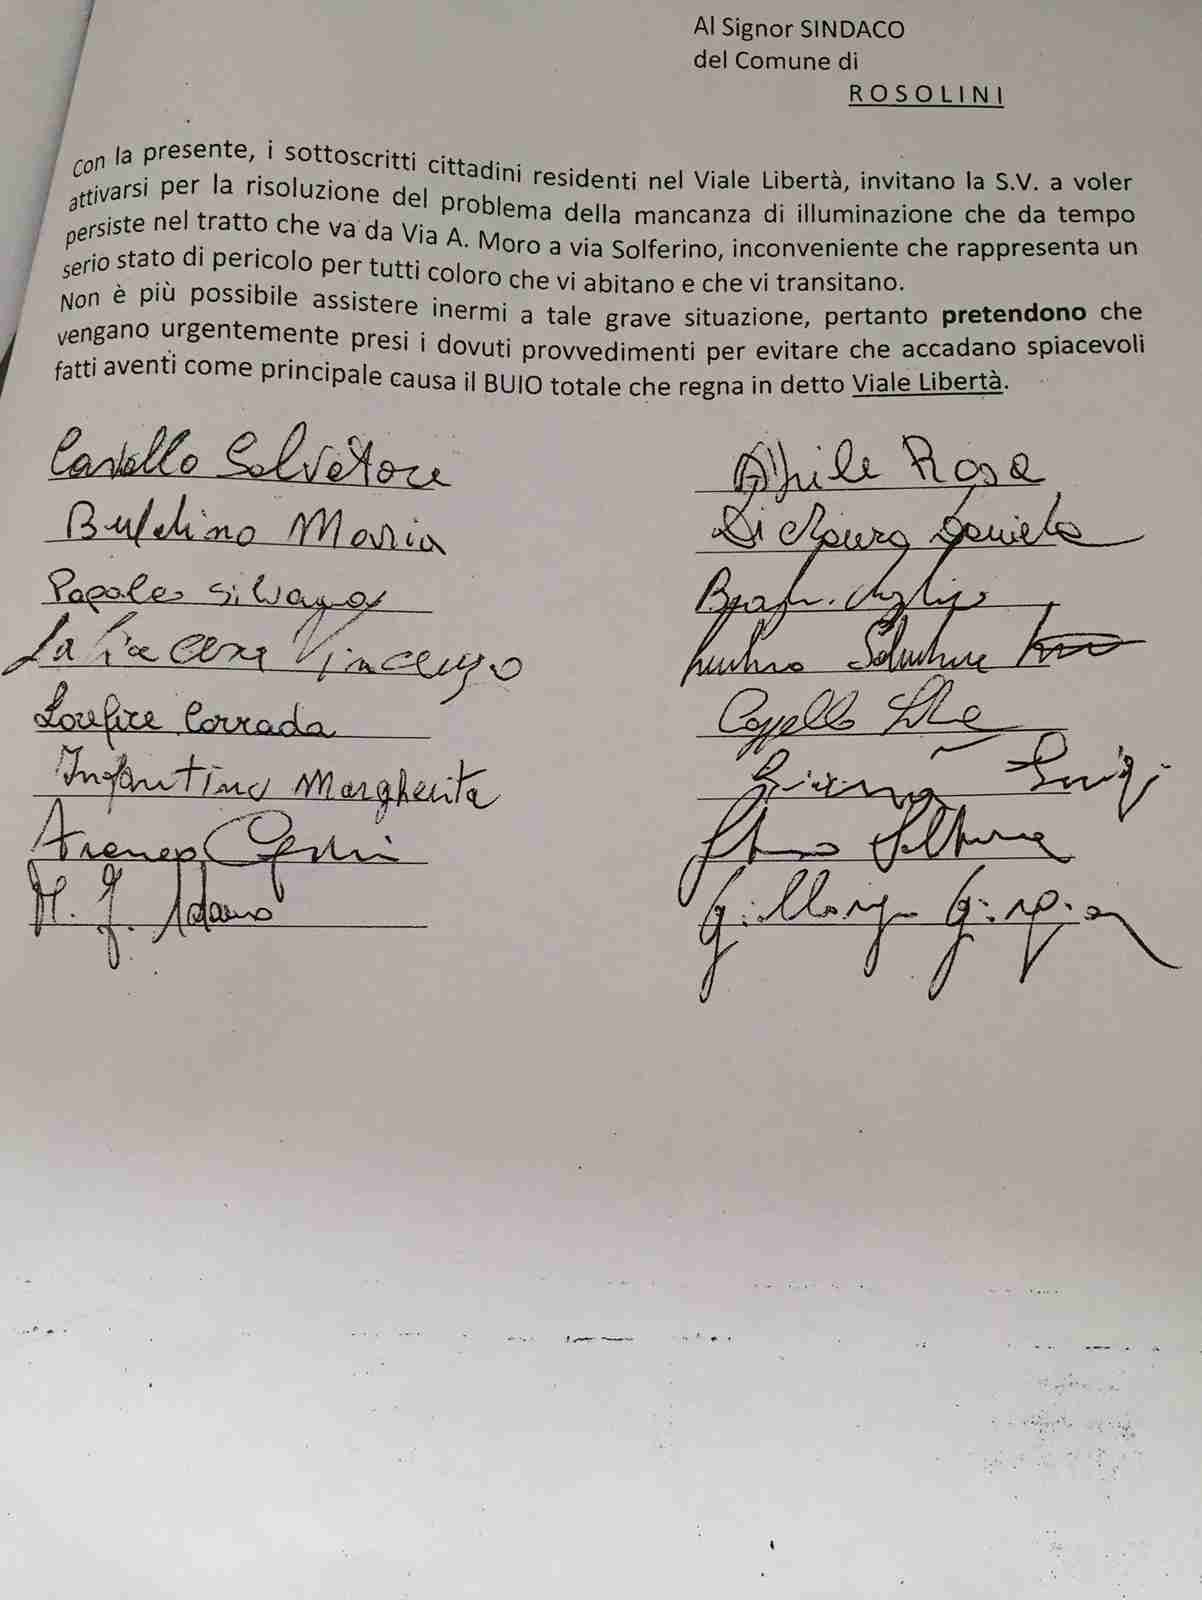 Al Signor SINDACO
del Comune di
ROSOLINI
Con la presente, i sottoscritti cittadini residenti nel Viale Libertà, invitano la S.V. a voler
attivarsi per la risoluzione del problema della mancanza di illuminazione che da tempo
persiste nel tratto che va da Via A. Moro a via Solferino, inconveniente che rappresenta un
serio stato di pericolo per tutti coloro che vi abitano e che vi transitano.
Non è più possibile assistere inermi a tale grave situazione, pertanto pretendono che
vengano urgentemente presi i dovuti provvedimenti per evitare che accadano spiacevoli
fatti aventi come principale causa il BUIO totale che regna in detto Viale Libertà.
Salvatore
Aprile Rosa
Maria
Daniela
Silvana
Vincenzo
Salvatore
Lorefice Corrada
Infantino Margherita
Luigi
Adamo